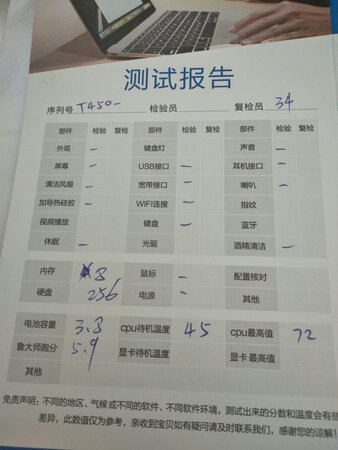 测试报告
序列号 T450- 检验员 复检员 34
部件 检验 复检 部件 检验 复检 部件 检验 复检
外观 - 键盘灯 声音 -
屏幕 - USB接口 - 耳机接口 -
清洁风扇 - 宽带接口 - 喇叭 -
加导热硅胶 - WIFI连接 - 指纹
视频播放 键盘 - 蓝牙
休眠 - 光驱 酒精清洁 -
内存 8 鼠标 - 配置核对
硬盘 256 电源 - 其他
电池容量 3.8 cpu待机温度 45 cpu最高值 72
鲁大师跑分 5.9 显卡待机温度 显卡最高值
其他
免责声明：不同的地区、气候或不同的软件、不同软件环境，测试出来的分数和温度会有些
差异，此数值仅为参考，亲收到宝贝如有疑问请及时联系我们，感谢您的谅解！